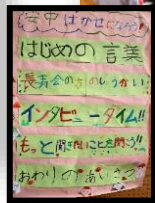 安中はかせになろう!
はじめの言葉
長寿会の方のしょうかい
インタビュータイム!!
もっと聞きたいことを聞こう!!
おわりのあいさつ